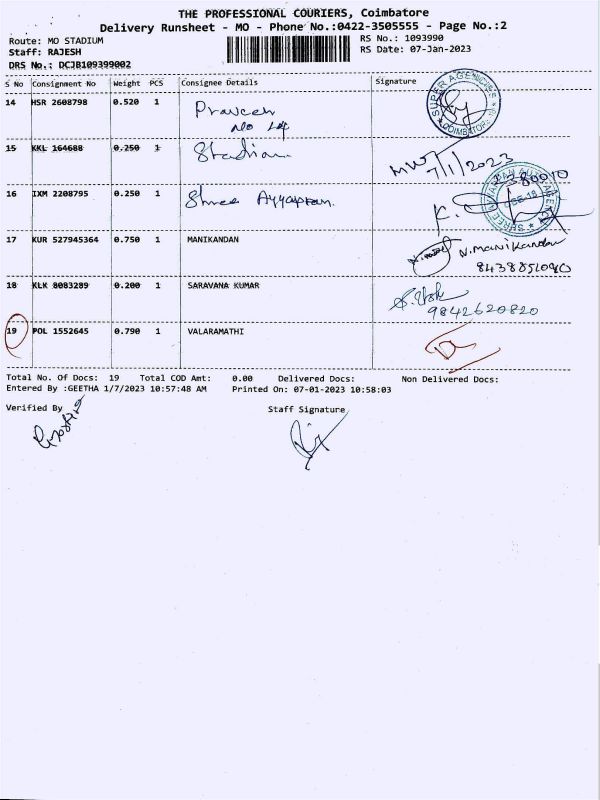 THE PROFESSIONAL COURIERS, Coimbatore
Delivery Runsheet - MO - Phone No.:0422-3505555 - Page No.:2
Route: MO STADIUM
Staff: RAJESH
DRS No.: DCJB109399002
RS No.: 1093990
RS Date: 07-Jan-2023
S No Consignment No Weight PCS Consignee Details Signature
14 HSR 2608798 0.520 1 Praveen
SUPER AGENCIES COIMBATORE
15 KKL 164688 0.250 1 Stadium
7/1/2023
16 IXM 2208795 0.250 1 Shree Ayyappan
17 KUR 527945364 0.750 1 MANIKANDAN N.Manikandan
8438851090
18 KLK 8083289 0.200 1 SARAVANA KUMAR
9842620820
19 POL 1552645 0.790 1 VALARAMATHI
Total No. Of Docs: 19 Total COD Amt: 0.00 Delivered Docs: Non Delivered Docs:
Entered By :GEETHA 1/7/2023 10:57:48 AM Printed On: 07-01-2023 10:58:03
Verified By Staff Signature